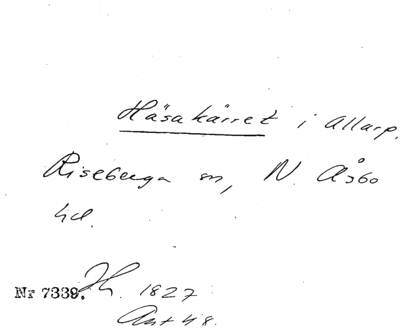 Häsakärret i Allarp.
Riseberga sn, N. Åsbo
hd.
Nr 7339. Jh. 1827
Ant 48.